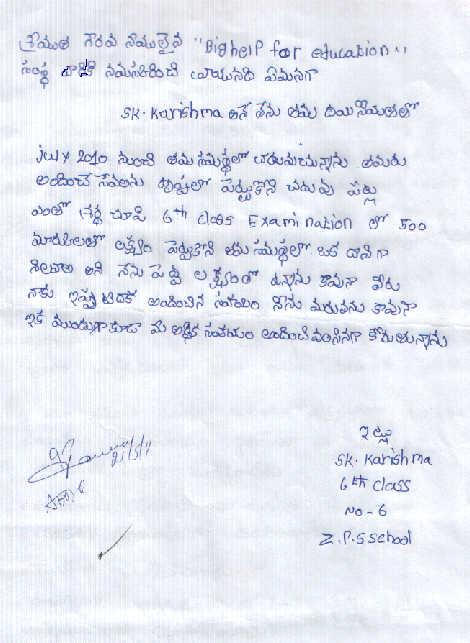 శ్రీయుత గౌరవ నీయులైన "Big help for education"
సంస్థ వారికి నమస్కరించి వ్రాయునది ఏమనగా
SK. Karishma అనే నేను తమ దయ
July 2010 నుంచి తమ సమస్థలో చదువుచున్నాను తమరు
అందించే సేవలను దృష్టిలో పెట్టుకొని చదువు పట్ల
ఎంతో శ్రద్ధ చూపి 6th class Examination లో 500
మార్కులలో లక్ష్యం పెట్టుకొని తమ సమస్థలో ఒక దానిగా
నిలవాలి అని నేను పెద్ద లక్ష్యంతో ఉన్నాను కావున మీరు
నాకు ఇప్పటిదాక అందించిన సహాయం నేను మరువను కావున
ఇక ముందుగా కూడా మీ ఆర్థిక సహాయం అందించవలసినదిగా కోరుచున్నాను
ఇట్లు
SK. Karishma
6th class
NO - 6
Z.P.S School